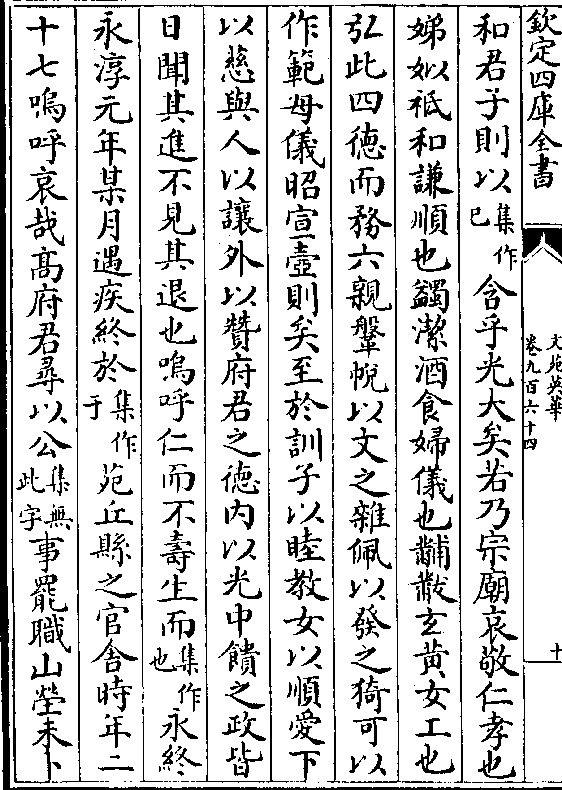 欽定四庫全書
文苑英華
卷九百六十四
十
和君子則以集作已含乎光大矣若乃宗廟哀敬仁孝也
娣姒祗和謙順也蠲潔酒食婦儀也黼黻玄黄女工也
弘此四徳而務六親鞶帨以文之雜佩以發之猗可以
作範母儀昭宣壼則矣至於訓子以睦教女以順愛下
以慈與人以讓外以贊府君之徳内以光中饋之政皆
日聞其進不見其退也嗚呼仁而不壽生而集作也永終
永淳元年某月遇疾終於集作于苑丘縣之官舍時年二
十七嗚呼哀哉髙府君尋以公集無此字事罷職山塋未卜